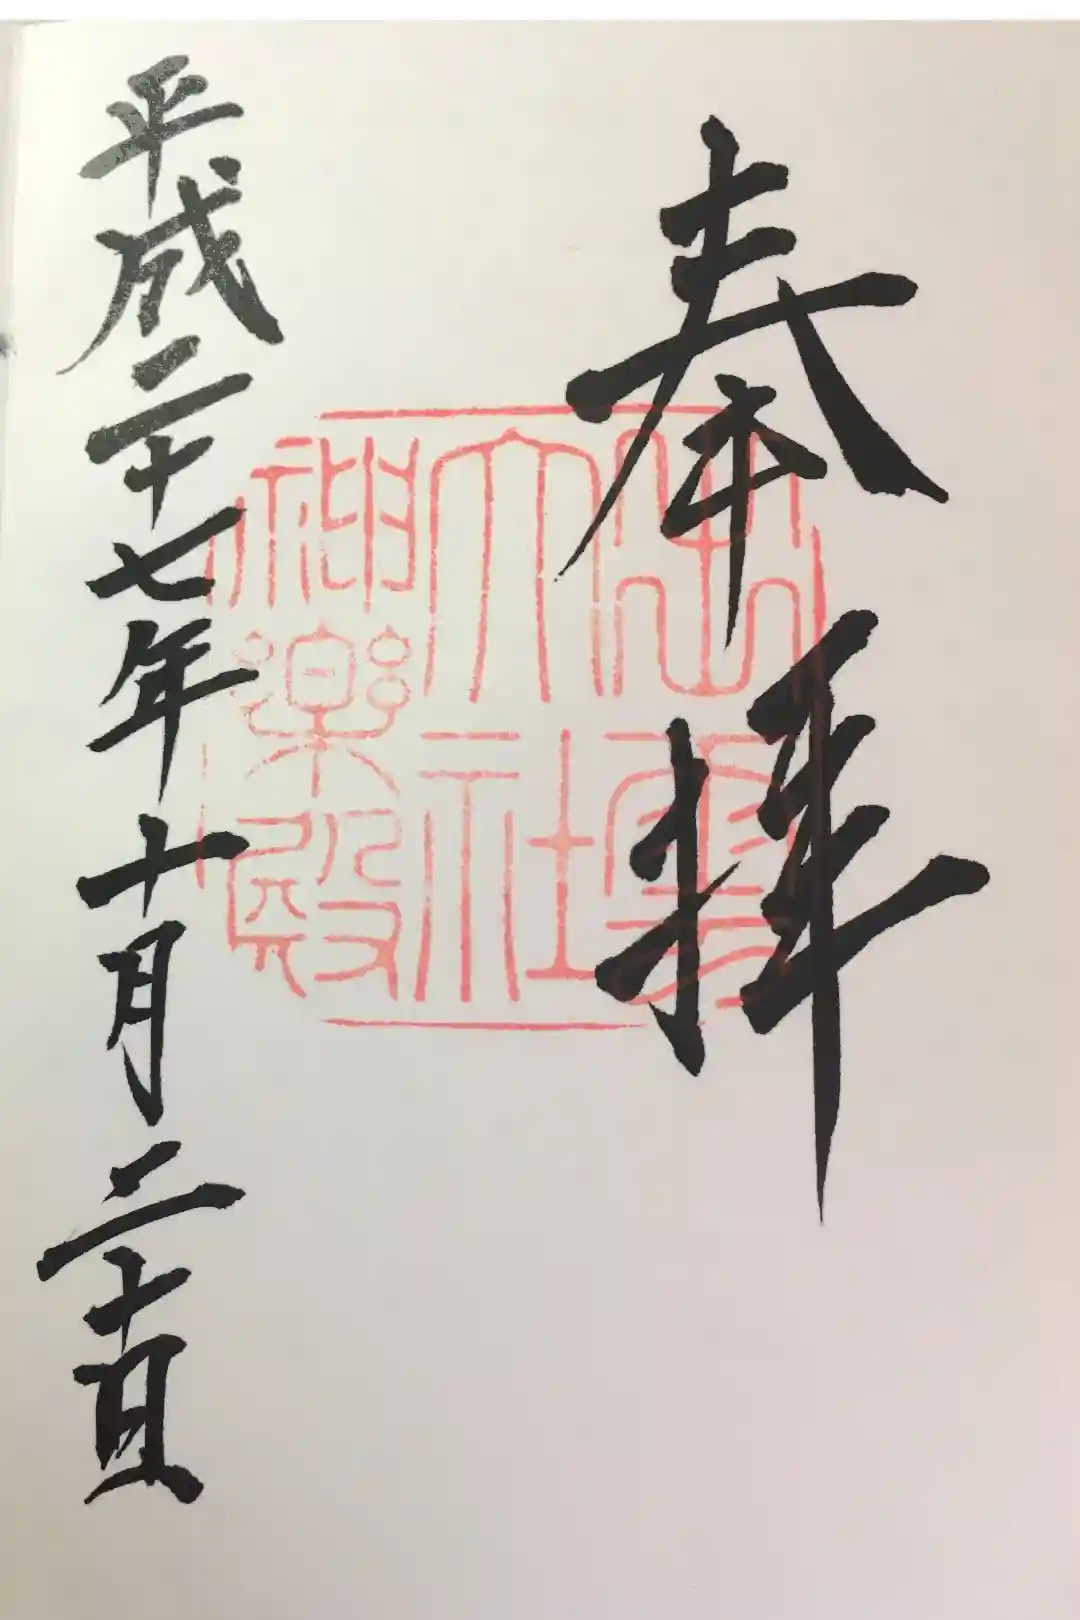 奉拝
出雲
大社
神楽殿
平成二十七年十月二十日